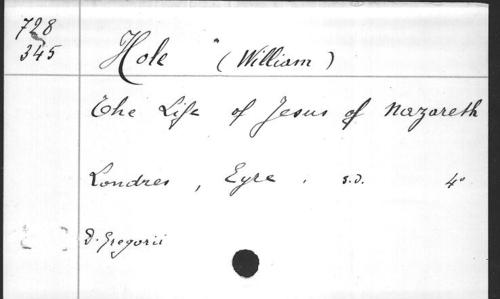 728
345
Hole " (William)
The Life of Jesus of Nazareth
Londres , Eyre . s.d. 4°
D. Gregorii